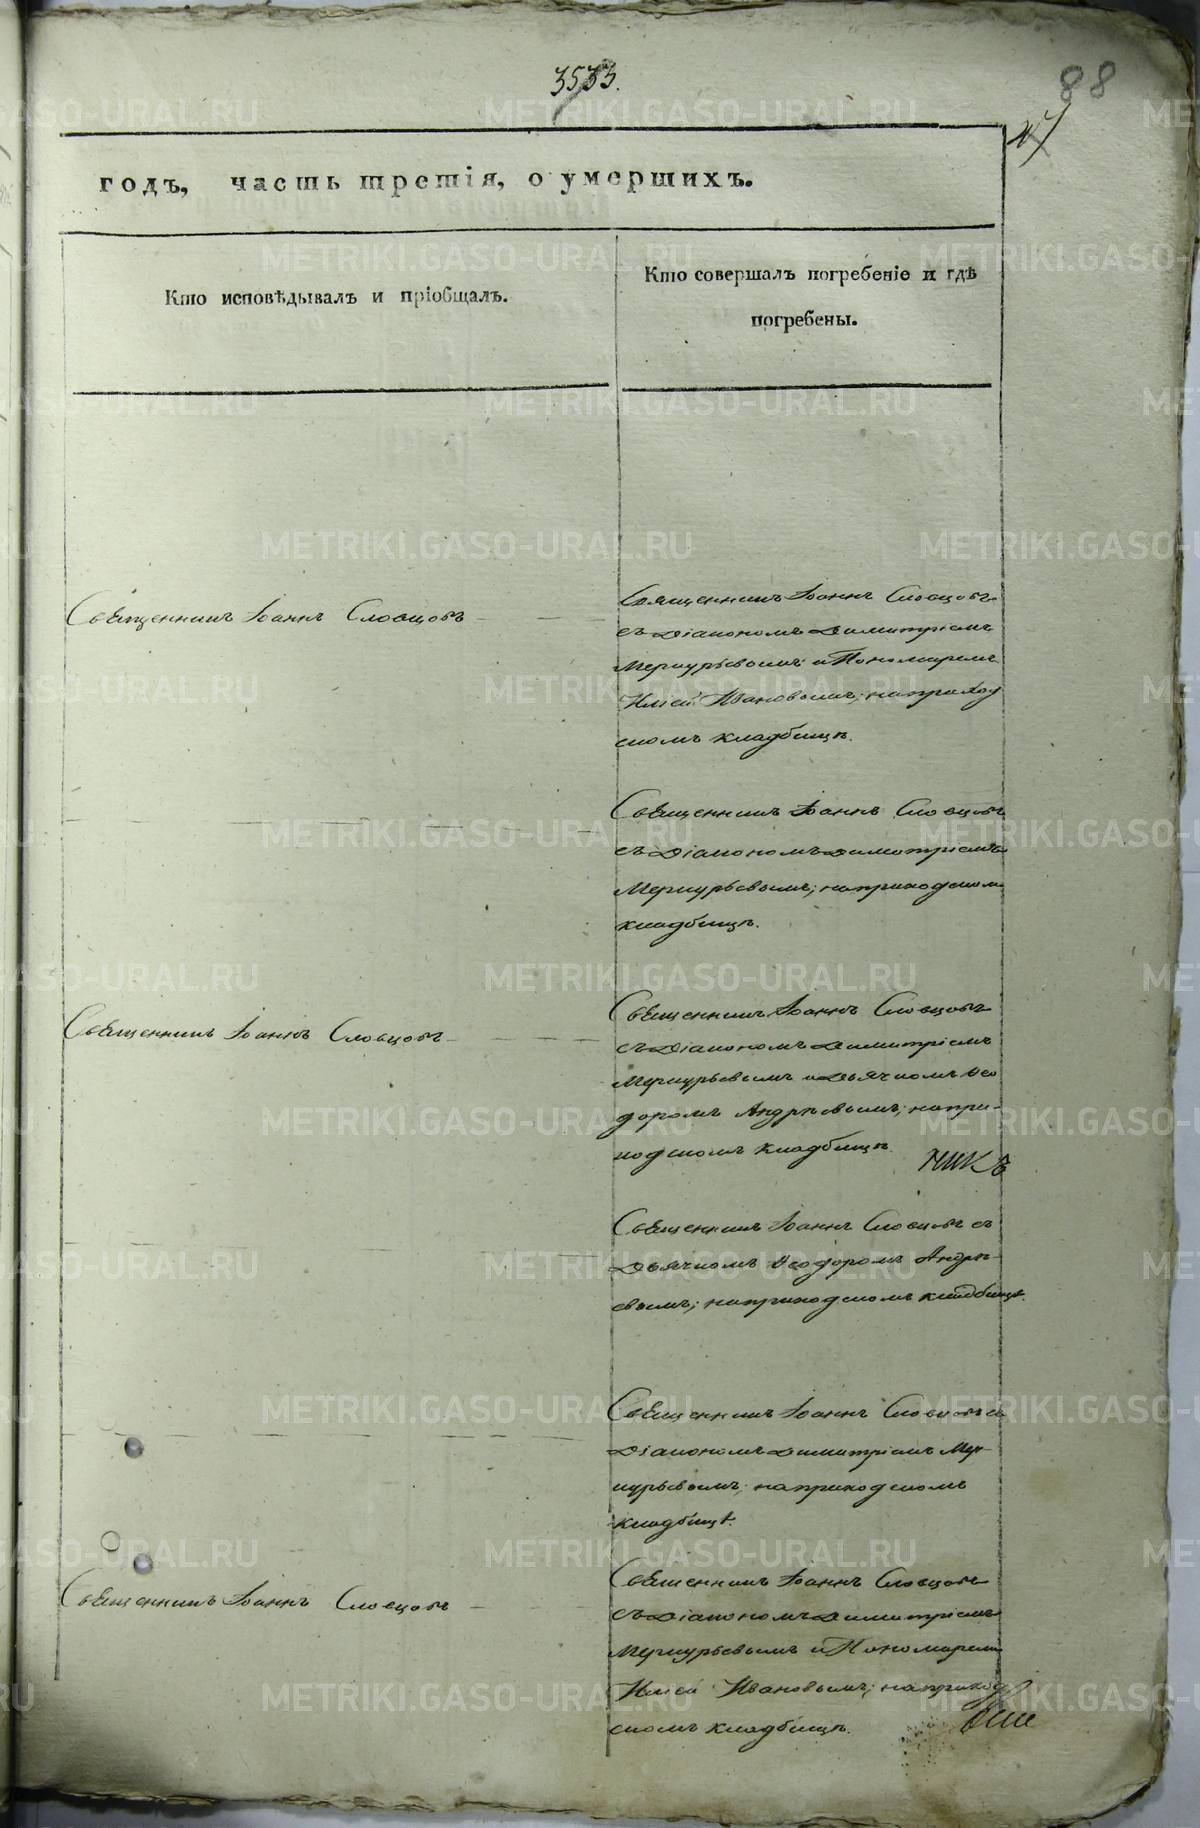 3533.
88
годъ, часть третія, о умершихъ.
Кто исповѣдывалъ и пріобщалъ.
Кто совершалъ погребеніе и гдѣ
погребены.
Священникъ Іоаннъ Словцовъ
Священникъ Іоаннъ Словцовъ
съ Діакономъ Димитріемъ
Меркурьевымъ и Пономаремъ
Иліей Ивановымъ; на приход
скомъ кладбищѣ.
Священникъ Іоаннъ Словцовъ
съ Діакономъ Димитріемъ
Меркурьевымъ; на приходском
кладбищѣ.
Священникъ Іоаннъ Словцовъ
Священникъ Іоаннъ Словцовъ
съ Діакономъ Димитріемъ
Меркурьевымъ и Дьячкомъ Ѳео
доромъ Андрѣевымъ; на при-
ходскомъ кладбищѣ.
никъ
Священникъ Іоаннъ Словцовъ съ
Дьячкомъ Ѳеодоромъ Андрѣ-
евымъ; на приходскомъ кладбищѣ.
Священникъ Іоаннъ Словцовъ съ
Діакономъ Димитріемъ Мер-
курьевымъ; на приходскомъ
кладбищѣ.
Священникъ Іоаннъ Словцовъ
Священникъ Іоаннъ Словцовъ
съ Діакономъ Димитріемъ
Меркурьевымъ и Пономарем
Иліей Ивановымъ; на приход
скомъ кладбищѣ.
METRIKI.GASO-URAL.RU